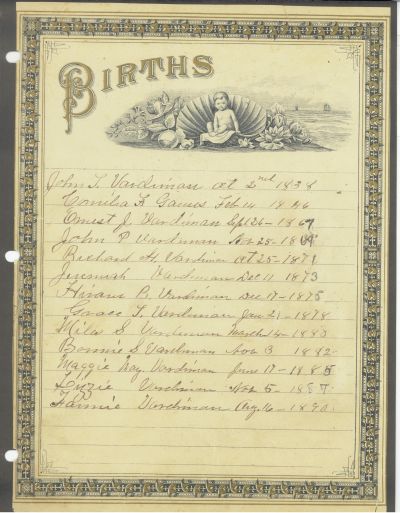 BIRTHS
John T. Vardiman oct 2nd 1838
Cornilia F. Gaines Feb 14 1846
Ernest J. Vardiman Sept 26 - 1867
John P Vardiman Nov 25 - 1869
Richard H. Vardiman oct 25 - 1871
Jeremiah Vardiman Dec 11 1873
Hiram B. Vardiman Dec 17 - 1875
Grace T. Vardiman Jan 21 - 1878
Miles S Vardiman March 14 - 1880
Bonnie S Vardiman Nov 3 1882
Maggie May Vardiman June 17 - 1885
Lizzie Vardiman Nov 5 - 1887
Fannie Vardiman Aug 16 - 1890